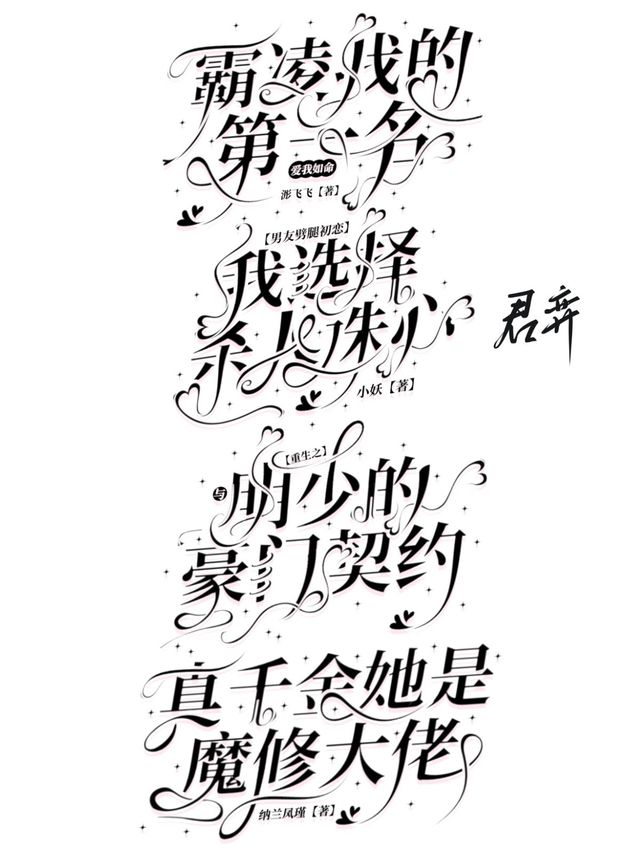 霸凌我的
第一名
爱我如命
澎飞飞【著】
【男友劈腿初恋】
我选择
杀人诛心
小妖【著】
君弈
【重生之】
与明少的
豪门契约
真千金她是
魔修大佬
纳兰风瑾【著】